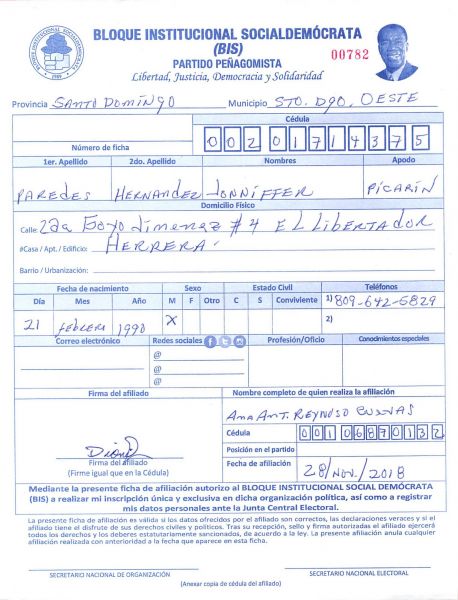 BLOQUE INSTITUCIONAL SOCIALDEMÓCRATA
(BIS)
PARTIDO PEÑAGOMISTA
Libertad, Justicia, Democracia y Solidaridad
00782
Provincia SANTO DOMINGO Municipio STO. DGO. OESTE
Cédula
Número de ficha 00201714375
1er. Apellido 2do. Apellido Nombres Apodo
PAREDES HERNANDEZ JONNIFFER PICARIN
Domicilio Físico
Calle: 22a Goyo Jimenez # 4 EL LIBERTADOR
#Casa / Apt. / Edificio: HERRERA
Barrio / Urbanización:
Fecha de nacimiento Sexo Estado Civil Teléfonos
Día Mes Año M F Otro C S Conviviente 1) 809-642-5829
21 Febrero 1990 X 2)
Correo electrónico Redes sociales Profesión/Oficio Conocimientos especiales
@
@
@
Firma del afiliado Nombre completo de quien realiza la afiliación
ANA ANT. REYNOSO BUENAS
Cédula 00106870132
Posición en el partido
Firma del afiliado
(Firme igual que en la Cédula)
Fecha de afiliación 28/NOV./2018
Mediante la presente ficha de afiliación autorizo al BLOQUE INSTITUCIONAL SOCIAL DEMÓCRATA
(BIS) a realizar mi inscripción única y exclusiva en dicha organización política, así como a registrar
mis datos personales ante la Junta Central Electoral.
La presente ficha de afiliación es válida si los datos ofrecidos por el afiliado son correctos, las declaraciones veraces y si el
afiliado tiene el disfrute de sus derechos civiles y políticos. Tras su recepción, sello y firma autorizadas el afiliado ejercerá
todos los derechos y los deberes estatutariamente sancionados, de acuerdo a la ley. La presente afiliación anula cualquier
afiliación realizada con anterioridad a la fecha que aparece en esta ficha.
SECRETARIO NACIONAL DE ORGANIZACIÓN SECRETARIO NACIONAL ELECTORAL
(Anexar copia de cédula del afiliado)